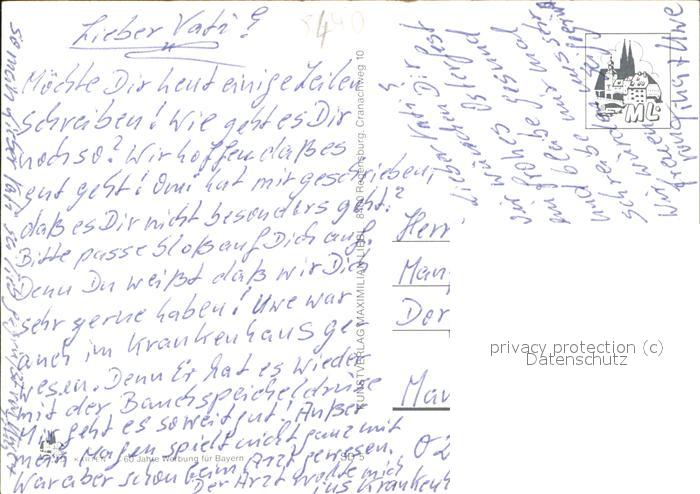 Lieber Vati!
Möchte Dir heut einige Zeilen
schreiben! Wie geht es Dir
noch so? Wir hoffen daß es
gut geht! Omi hat mir geschrieben,
daß es Dir nicht besonders geht?
Bitte passe bloß auf Dich auf.
Denn Du weißt daß wir Dich
sehr gerne haben! Uwe war
auch im Krankenhaus ge
wesen. Denn Er hat es wieder
mit der Bauchspeicheldrüse
Mir geht es soweit gut! Außer
mein Magen spielt nicht ganz mit
War aber schon beim Arzt gewesen.
Der Arzt wollte mich
ins Krankenh
Lieber Vati!
wir wünschen Dir
ein frohes Osterfest
und bleibe gesund
Schreibe mir mal
Wir würden uns sehr
freuen
+ Uwe
Herr
Man
Dor
Mav
ML
KUNSTVERLAG MAXIMILIAN LIEBL 8400 Regensburg, Cranachweg 10
KARTEN
60 Jahre Werbung für Bayern
privacy protection (c)
Datenschutz